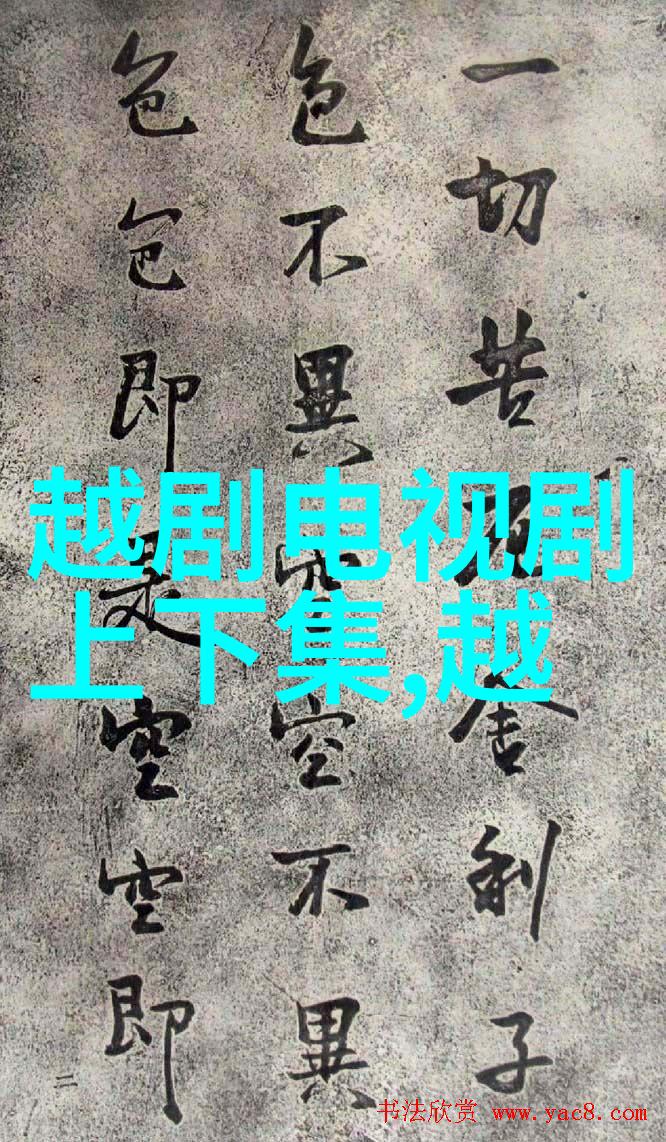 一切苦厄舍利子
色不異空空不異
色色即是空空即
二
越剧电视剧
上下集,越
书法欣赏 www.yac8.com